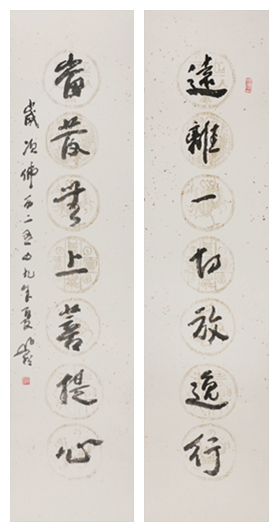 遠離一切放逸行
當發無上菩提心
歲次佛曆二五四九年夏